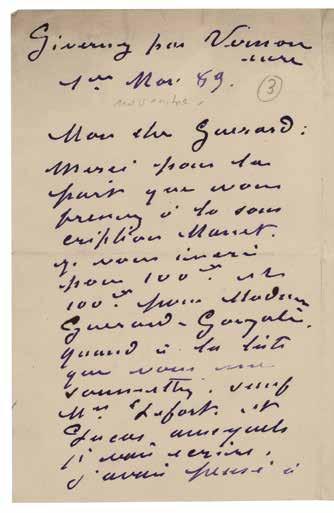 Giverny par Vernon
eure
1er Nov. 89.
novembre.
3
Mon cher Guérard:
Merci pour la
part que vous
prenez à la sous
cription Manet.
je vous inscris
pour 100 f. et
100 f. pour Madame
Guérard-Gonzalès.
quand à la liste
que vous me
soumettez. sauf
Mrs Lefort et
Lucas auxquels
j'vais écrire.
j'avais pensé à